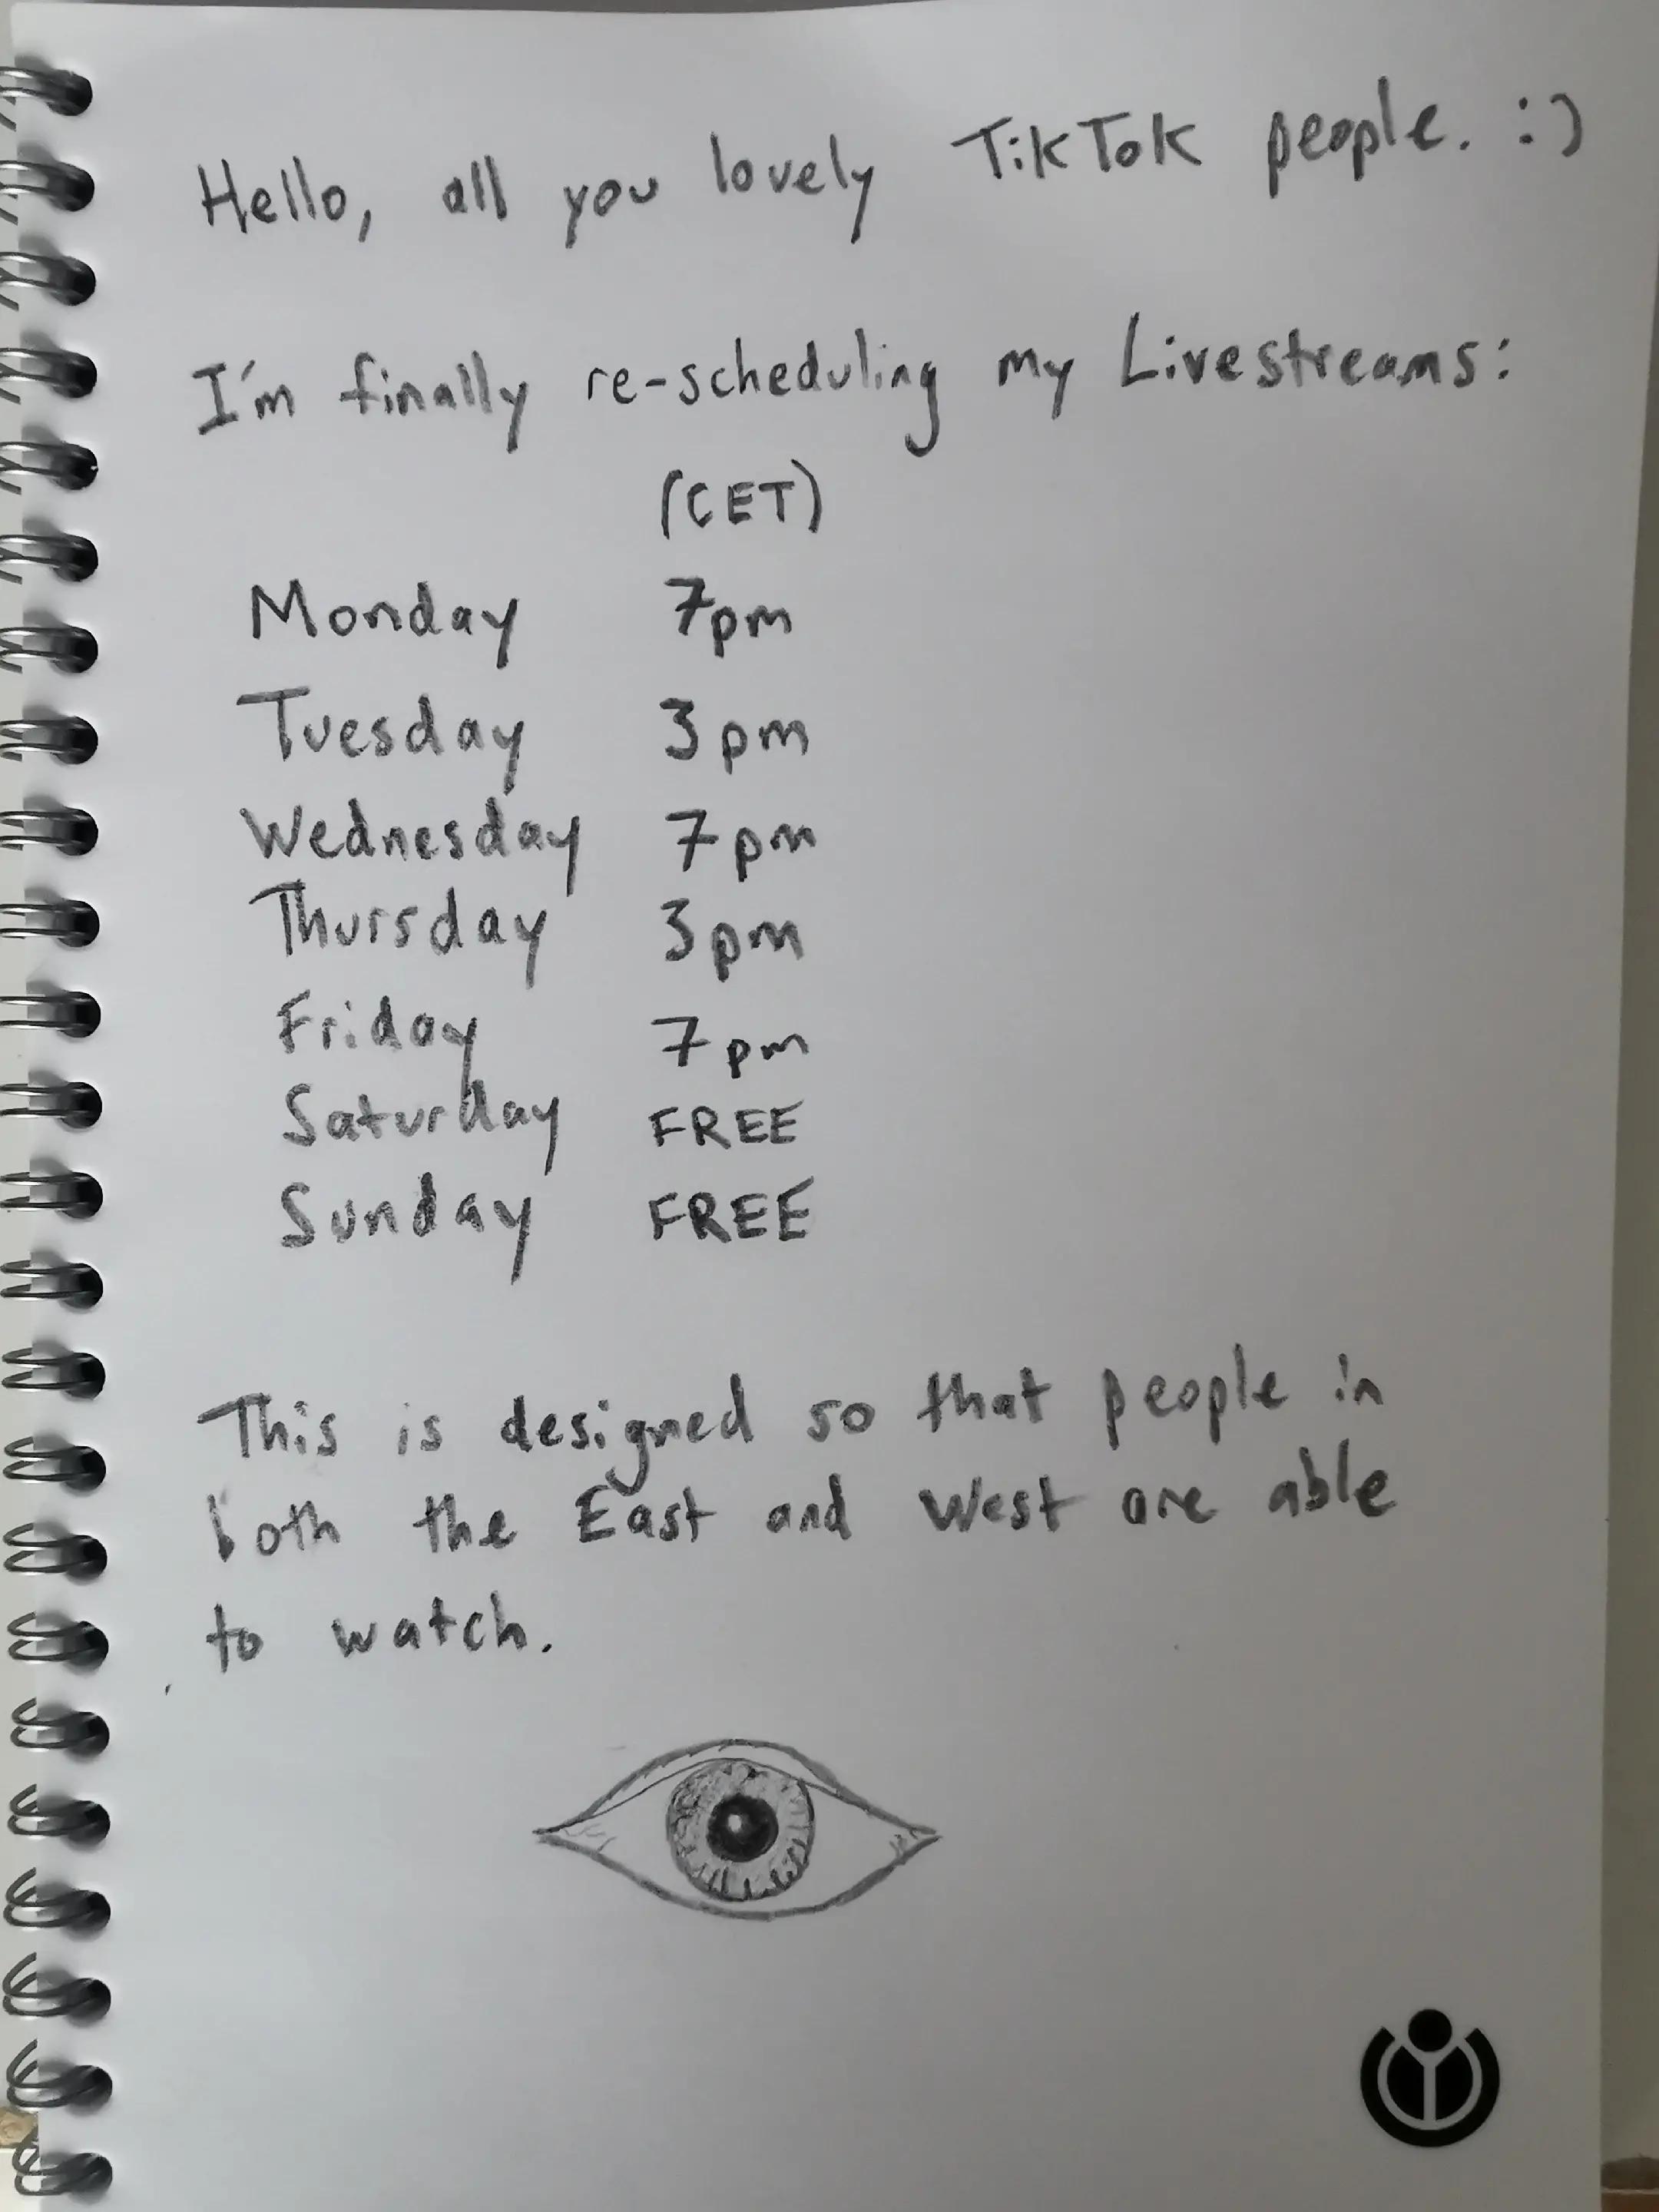 Hello, all you lovely TikTok people. :)
I'm finally re-scheduling my Livestreams:
(CET)
Monday 7pm
Tuesday 3pm
Wednesday 7pm
Thursday 3pm
Friday 7pm
Saturday FREE
Sunday FREE
This is designed so that people in
both the East and West are able
to watch.